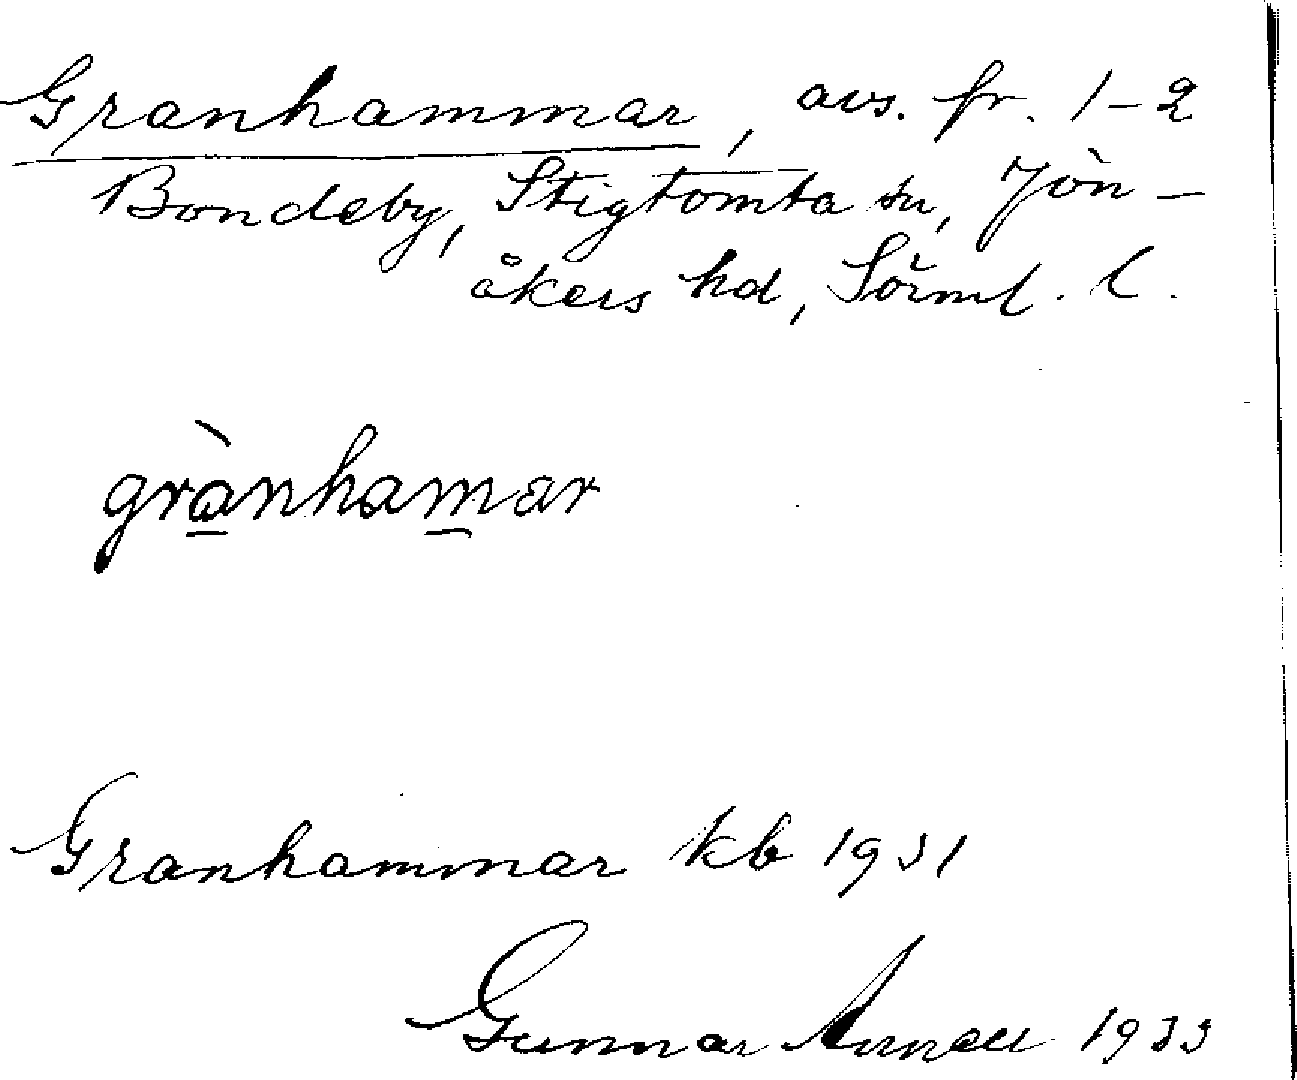 Granhammar, avs. fr. 1-2
Bondeby, Stigtomta sn, Jön-
åkers hd, Sörml. l.
grànhamar
Granhammar kb 1931
Gunnar 1933